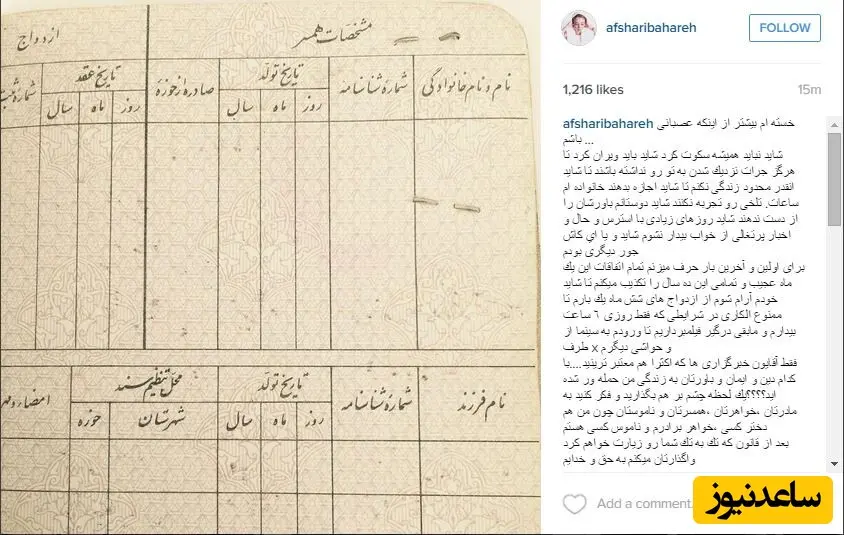 مشخصات همسر
ازدواج
نام و نام خانوادگی
شمارهٔ شناسنامه
تاریخ تولد
روز
ماه
سال
صادره از حوزه
تاریخ عقد
روز
ماه
سال
نام فرزند
شمارهٔ شناسنامه
تاریخ تولد
روز
ماه
سال
محل تنظیم سند
شهرستان
حوزه
afsharibahareh
FOLLOW
1,216 likes
15m
afsharibahareh خسته ام بیشتر از اینکه عصبانی
باشم ...
شاید نباید همیشه سکوت کرد شاید باید ویران کرد تا
هرگز جرات نزدیك شدن به تو رو نداشته باشند تا شاید
انقدر محدود زندگی نکنم تا شاید اجازه بدهند خانواده ام
ساعات. تلخی رو تجربه نکنند شاید دوستانم باورشان را
از دست ندهند شاید روزهای زیادی با استرس و حال و
اخبار پرتغالی از خواب بیدار نشوم شاید و یا اي کاش
جور دیگری بودم
برای اولین و آخرین بار حرف میزنم تمام اتفاقات این یك
ماه عجیب و تمامی این ده سال را تکذیب میکنم تا شاید
خودم آرام شوم از ازدواج های شش ماه یك بارم تا
ممنوع الکاری در شرایطی که فقط روزی ٦ ساعت
بیدارم و مابقی درگیر فیلمبرداریم تا ورودم به سینما از
طرف x و حواشی دیگرم
فقط آقایون خبرگزاری ها که اکثرا هم معتبر ترینید....با
کدام دین و ایمان و باورتان به زندگی من حمله ور شده
اید؟؟؟؟یك لحظه چشم بر هم بگذارید و فکر کنید به
مادرتان ،خواهرتان ،همسرتان و ناموستان چون من هم
دختر کسی ،خواهر برادرم و ناموس کسی هستم
بعد از قانون که تك به تك شما رو زیارت خواهم کرد
واگذارتان میکنم به حق و خدایم
Add a comment.
ساعدنیوز